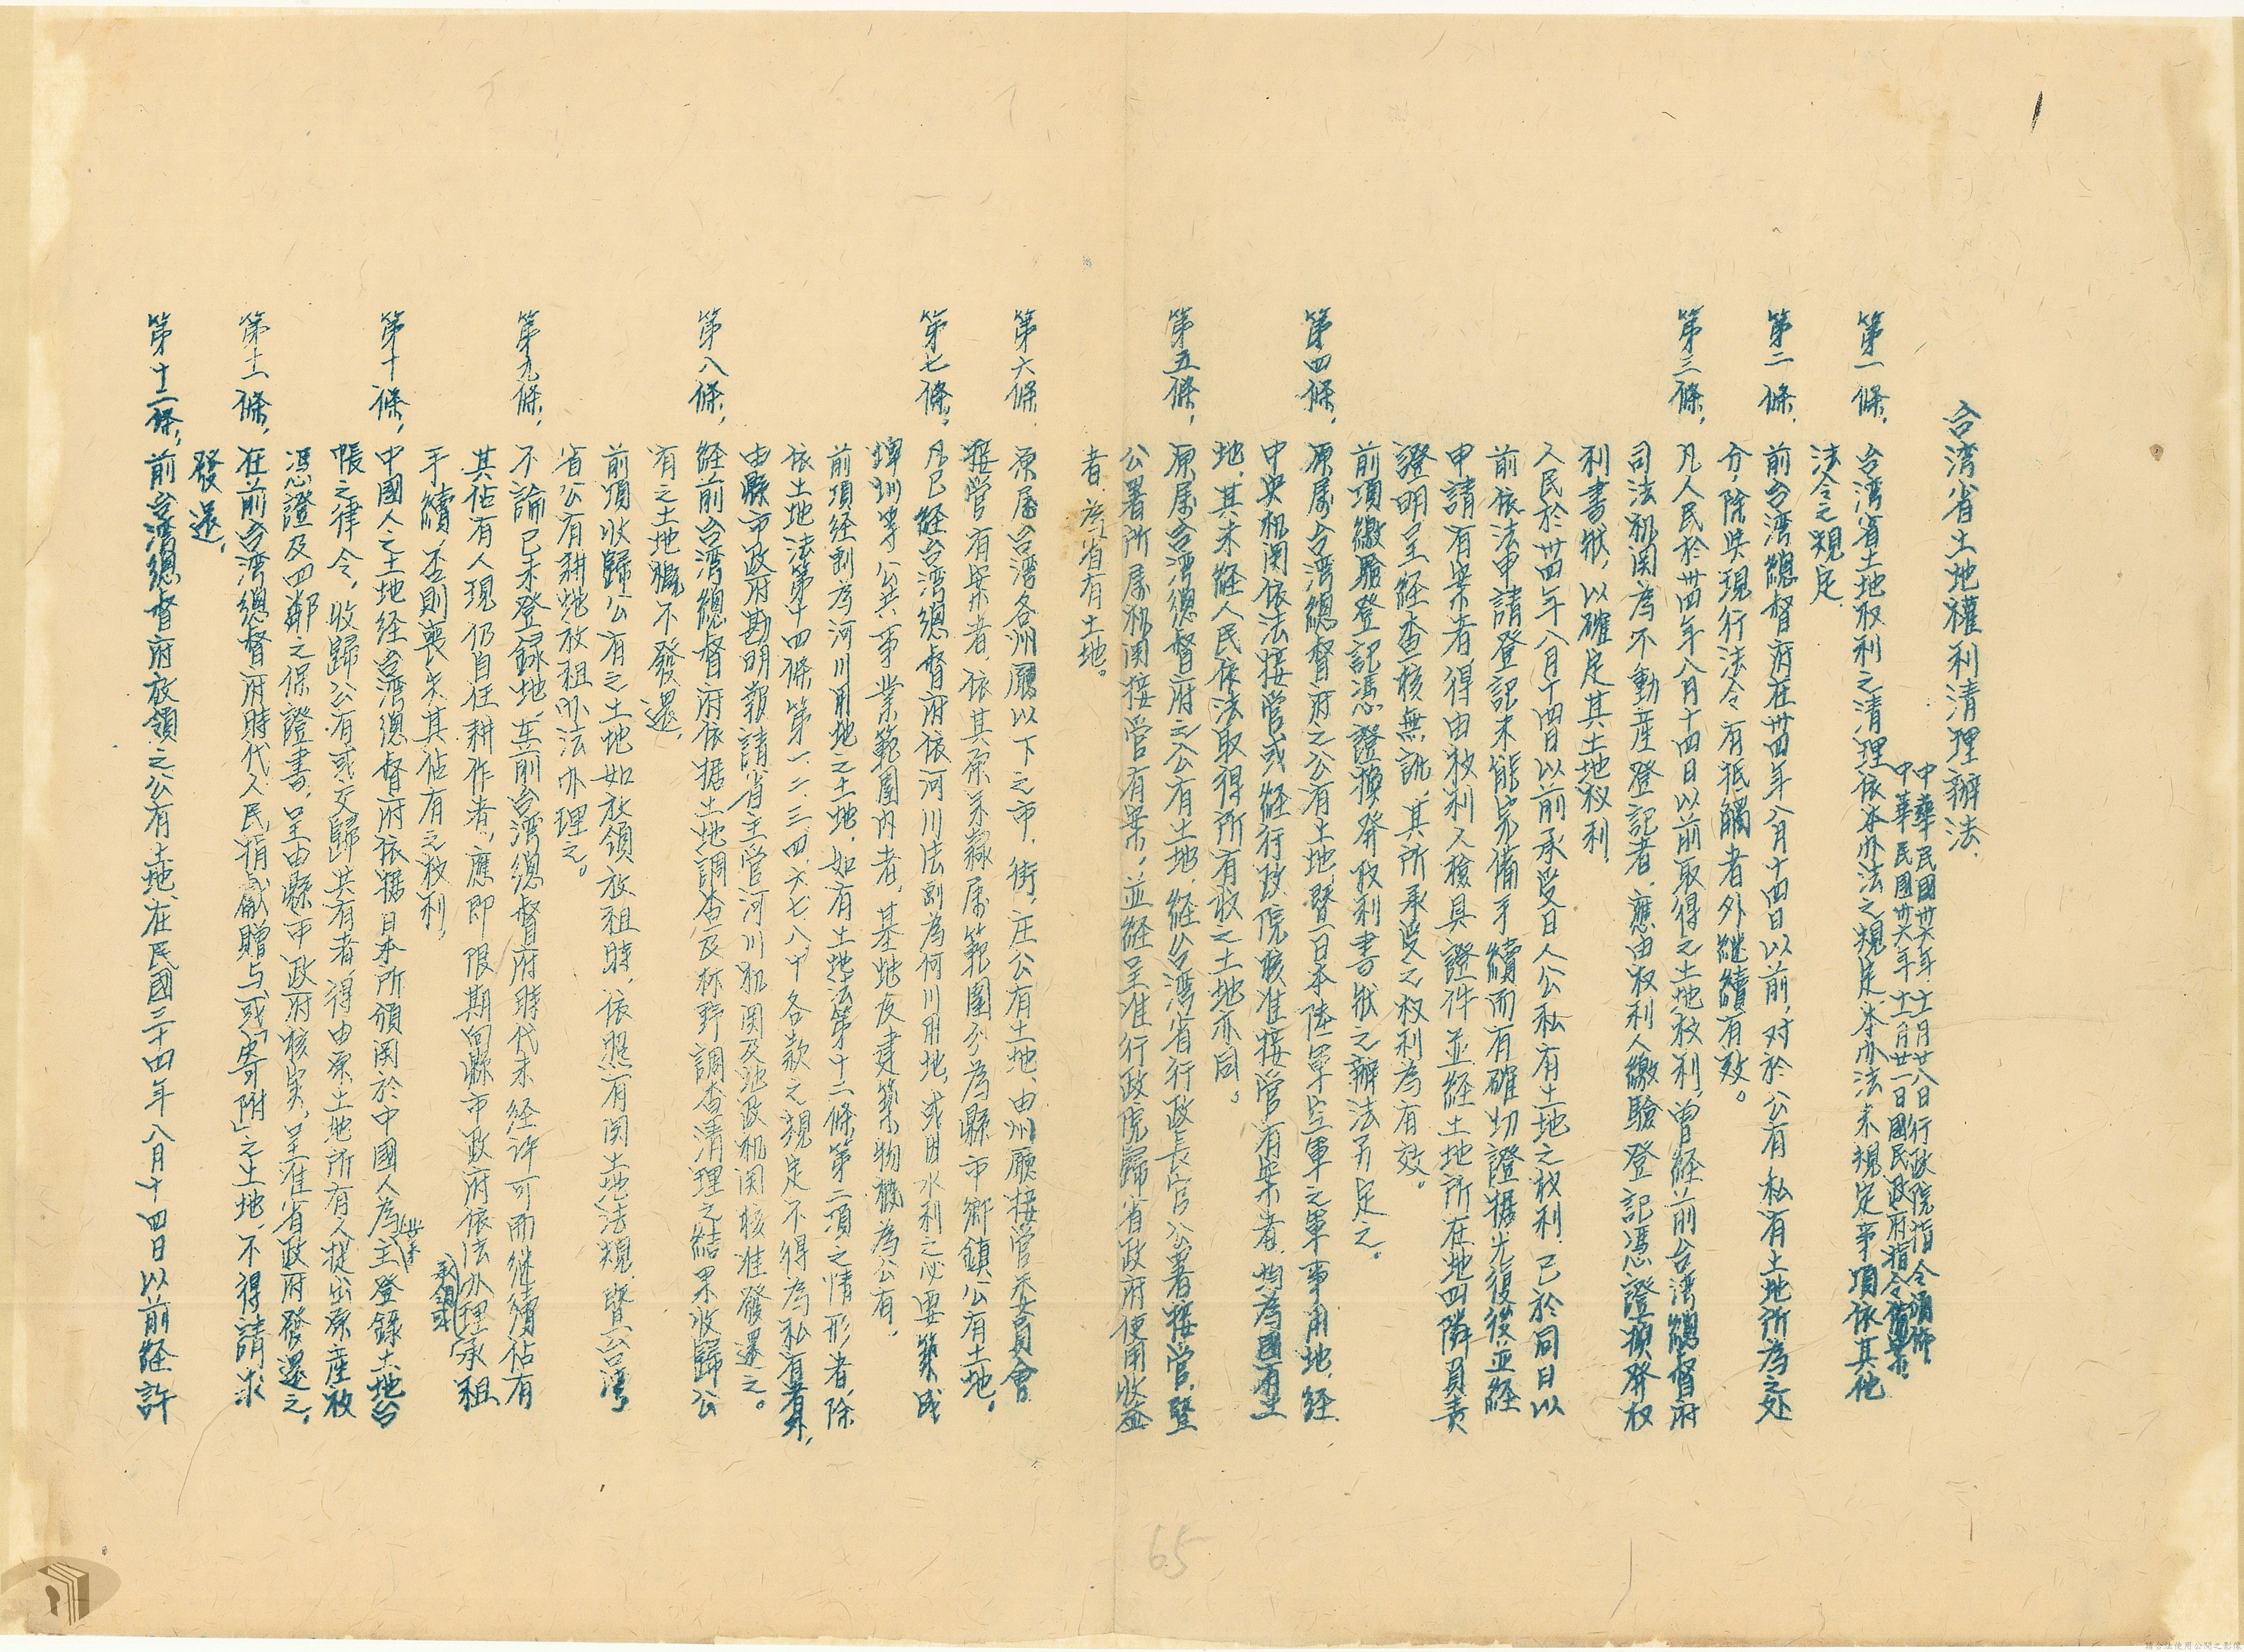 台湾省土地權利清理辦法.
中華民國卅六年十一月廿八日行政院指令頒佈
中華民國卅六年十二月廿一日國民政府指令備案.
第一條, 台湾省土地权利之清理依本办法之規定本办法未規定事項依其他
法令之規定.
第二條, 前台湾總督府在卅四年八月十四日以前,对於公有私有土地所為之处
分,除與現行法令有抵觸者外継續有效。
第三條, 凡人民於卅四年八月十四日以前取得之土地权利,曾経前台湾總督府
司法机関為不動産登記者.應由权利人繳驗登記憑證換発权
利書狀,以確定其土地权利
人民於卅四年八月十四日以前承受日人公私有土地之权利.已於同日以
前依法申請登記未能完備手續而有確切證据光復後並経
申請有案者,得由权利人檢具證件並経土地所在地四隣負責
證明呈経查核無訛,其所承受之权利為有效。
前項繳驗登記憑證換発权利書狀之辦法另定之。
第四條, 原属台湾總督府之公有土地,暨日本陸軍空軍之軍事用地,経
中央机関依法接管或経行政院核准接管有案者.均為國有土
地,其未経人民依法取得所有权之土地亦同。
第五條, 原属台湾總督府之公有土地.経台湾省行政長官公署接管,暨
公署所属机関接管有案,並経呈准行政院歸省政府使用收益
者為省有土地。
第六條, 原属台湾各州廳以下之市,街,庄公有土地,由州廳接管委員會
接管有案者,依其原來隸属範圍分為縣市鄉鎮公有土地。
第七條, 凡已経台湾總督府依河川法劃為河川用地,或因水利之必要築成
埤圳等公共事業範圍內者,其基地及建築物概為公有,
前項経劃為河川用地之土地,如有土地法第十二條第二項之情形者,除
依土地法第十四條第一.二.三.四.六.七.八.十各款之規定不得為私有者外,
由縣市政府勘明報請省主管河川机関及地政机関核准發還之。
第八條, 経前台湾總督府依据土地調查及林野調查清理之結果收歸公
有之土地概不發還,
前項收歸公有之土地如放領放租時,依照有関土地法規,暨台湾
省公有耕地放租办法办理之。
第九條, 不論已未登録地,在前台湾總督府時代未経许可而継續佔有
其佔有人現仍自任耕作者,應即限期向縣市政府依法办理承領或承租
手續,否則喪失其佔有之权利,
第十條, 中國人之土地経台湾總督府依据日本所頒関於中國人為業主登錄土地台
帳之律令,收歸公有或交歸共有者,得由原土地所有人提出原産权
憑證及四鄰之保證書,呈由縣市政府核实,呈准省政府發還之。
第十一條, 在前台湾總督府時代人民捐獻贈与或「寄附」之土地,不得請求
發還,
第十二條, 前台湾總督府放領之公有土地,在民國三十四年八月十四日以前経許
65